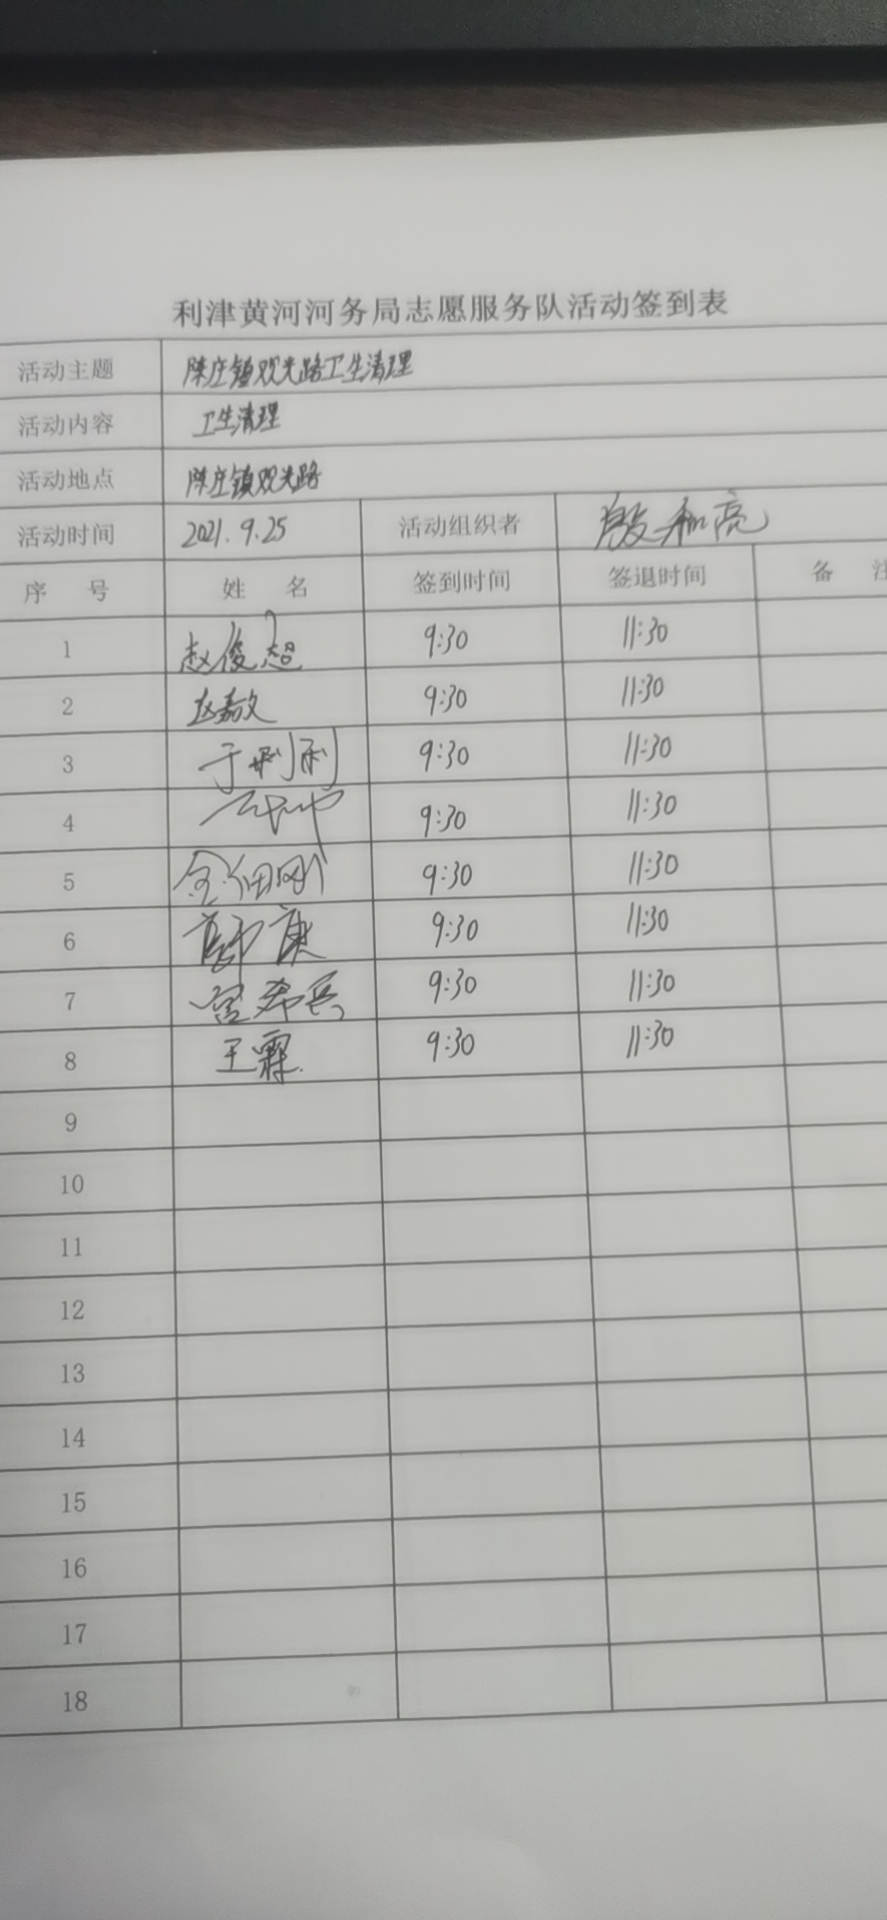 利津黄河河务局志愿服务队活动签到表
活动主题 陈庄镇观光路卫生清理
活动内容 卫生清理
活动地点 陈庄镇观光路
活动时间 2021.9.25 活动组织者 殷和亮
序 号 姓 名 签到时间 签退时间 备 注
1 赵俊超 9:30 11:30
2 赵嘉文 9:30 11:30
3 于利利 9:30 11:30
4 9:30 11:30
5 9:30 11:30
6 9:30 11:30
7 宫希兵 9:30 11:30
8 王霖 9:30 11:30
9
10
11
12
13
14
15
16
17
18